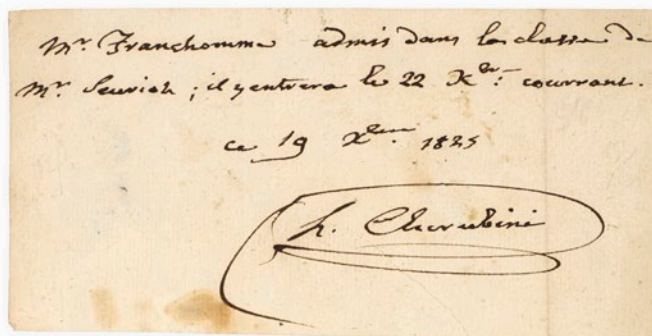 Mr. Franchomme admis dans la classe de
Mr. Seuriot ; il y entrera le 22 Xbre: courrant.
ce 19 Xbre. 1825
L. Cherubini